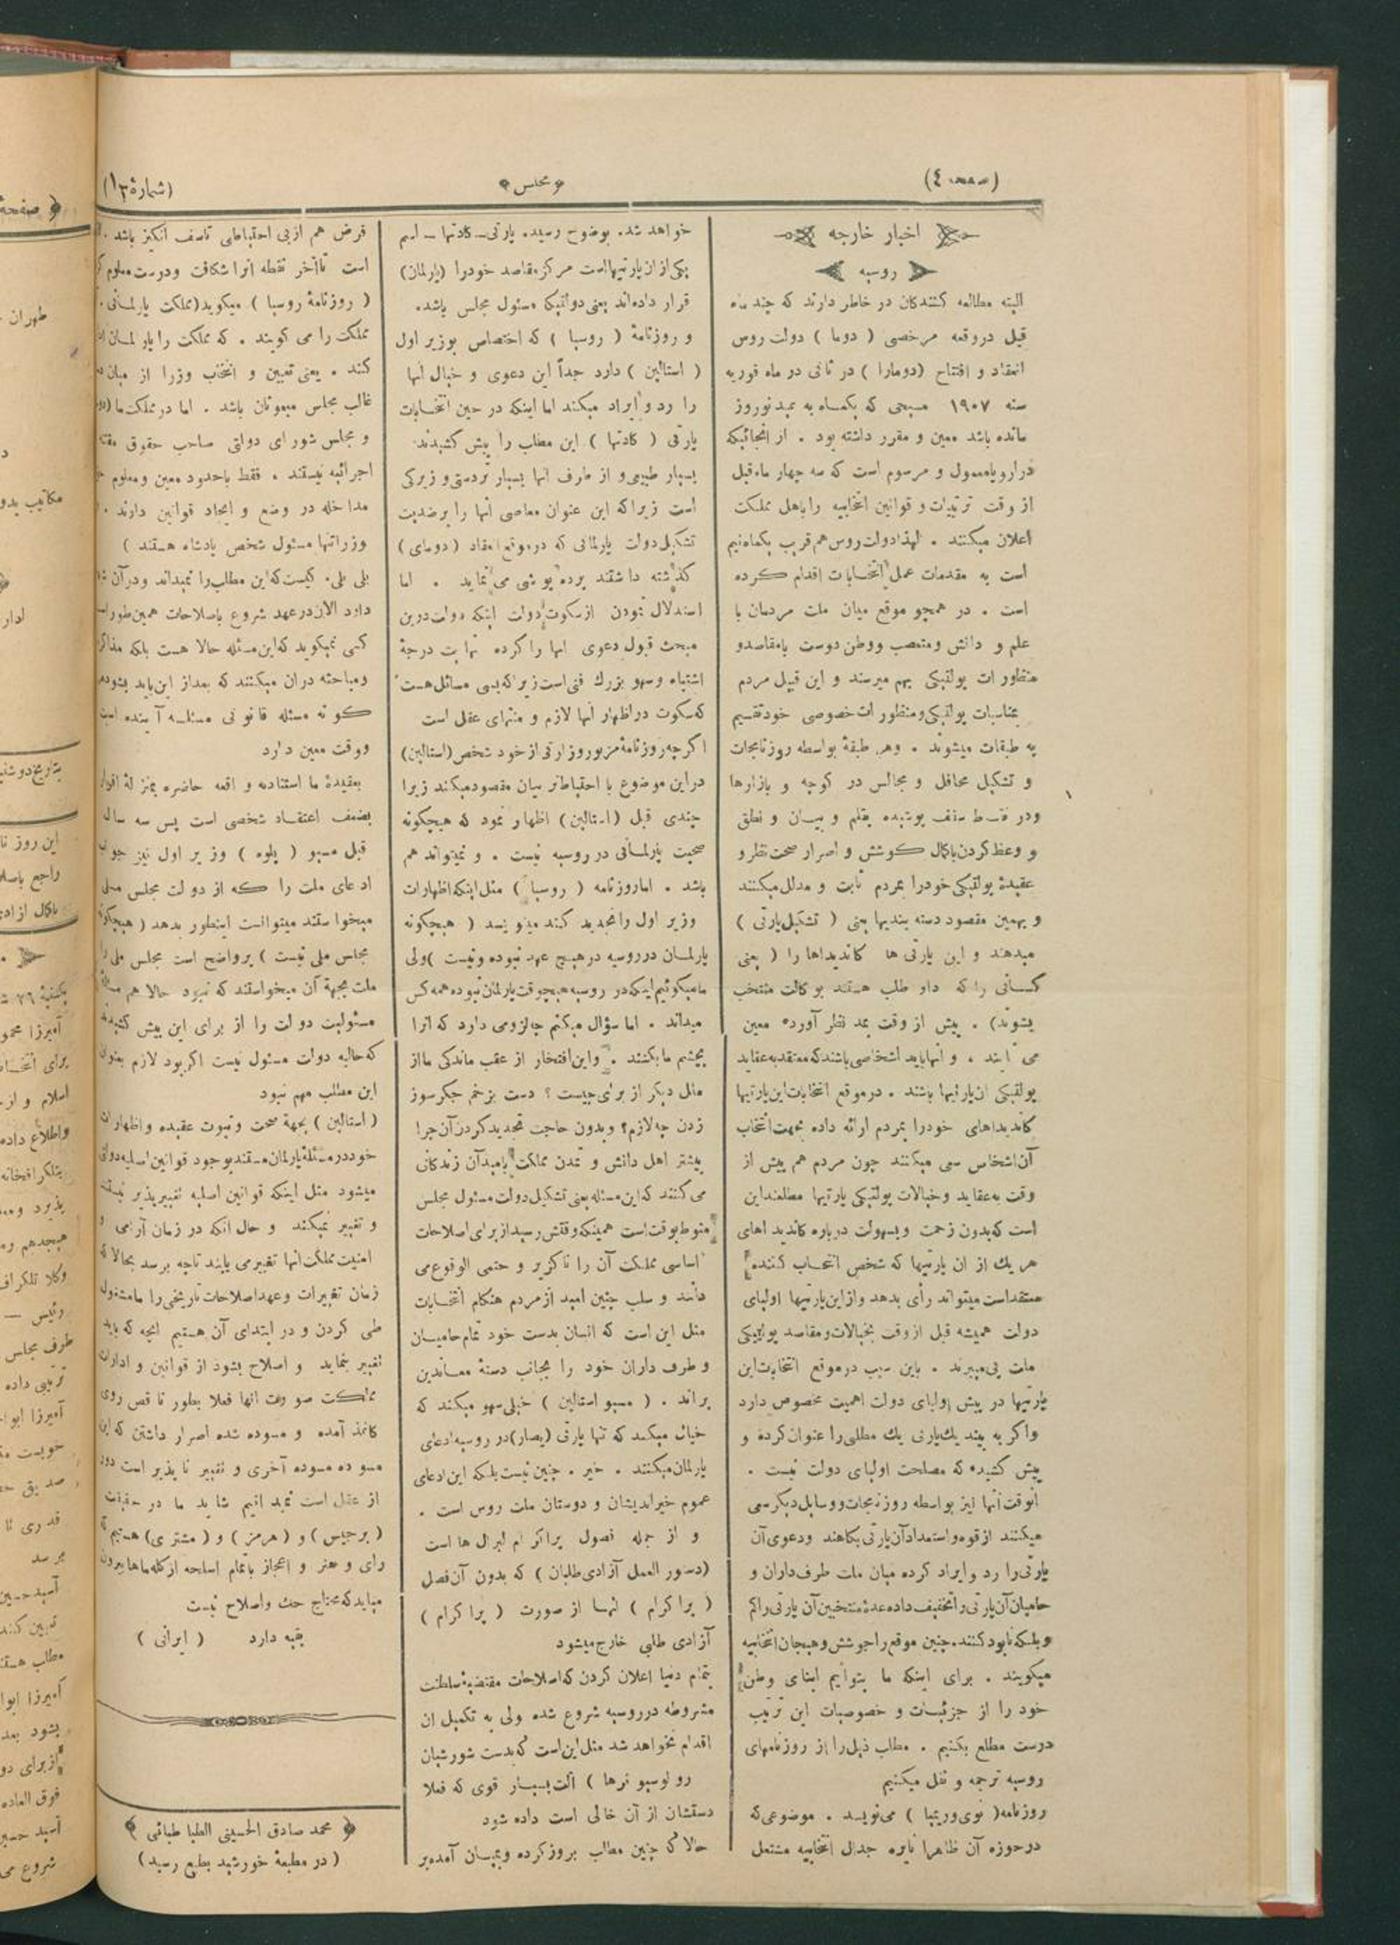 (صفحه ٤)
مجلس
(شمارهٔ ١٣)
اخبار خارجه
روسیه
البته مطالعه کنندگان در خاطر دارند که چند ماه
قبل در وقعه مرخصی ( دوما ) دولت روس
انعقاد و افتتاح (دومارا ) در ثانی در ماه فوریه
سنه ١٩٠٧ مسیحی که یکماه به عید نوروز
مانده باشد معین و مقرر داشته بود . از آنجائیکه
در اروپا معمول و مرسوم است که سه چهار ماه قبل
از وقت ترتیبات و قوانین انتخابیه را باهل مملکت
اعلان میکنند . لهذا دولت روس هم قریب یکماه نیم
است به مقدمات عمل انتخابات اقدام کرده
است . در همچو موقع میان ملت مردمان با
علم و دانش و متعصب و وطن دوست با مقاصد و
منظورات پولتیکی بهم میرسند و این قبیل مردم
بمناسبات پولتیکی و منظورات خصوصی خود تقسیم
به طبقات میشوند . و هر طبقهٔ بواسطه روزنامجات
و تشکیل محافل و مجالس در کوچه و بازارها
و در سقف پوشیده بقلم و بیان و نطق
و وعظ کردن باکمال کوشش و اصرار صحت نظر و
عقیدهٔ پولتیکی خودرا بمردم ثابت و مدلل میکنند
و بهمین مقصود دسته بندیها یعنی ( تشکیل پارتی )
میدهند و این پارتی ها کاندیداها را ( یعنی
کسانی را که داو طلب هستند بوکالت منتخب
بشوند) . پیش از وقت بمد نظر آورده معین
می نمایند . و آنها باید اشخاصی باشند که معتقد به عقاید
پولتیکی آن پارتیها باشند . در موقع انتخابات این پارتیها
کاندیداهای خودرا بمردم ارائه داده بجهت انتخاب
آن اشخاص سعی میکنند چون مردم هم پیش از
وقت به عقاید و خیالات پولتیکی پارتیها مطلعند این
است که بدون زحمت و بسهولت درباره کاندیداهای
هر یك از ان پارتیها که شخص انتخاب کننده
معتقد است میتواند رأی بدهد و از این پارتیها اولیای
دولت همیشه قبل از وقت بخیالات و مقاصد پولتیکی
ملت پی میبرند . باین سبب در موقع انتخابات این
پارتیها در پیش اولیای دولت اهمیت مخصوص دارد
و اگر به بیند یك پارتی یك مطلبی را عنوان کرده و
پیش کشیده که مصلحت اولیای دولت نیست .
آنوقت آنها نیز بواسطه روزنامجات و وسایل دیگر سعی
میکنند از قوه و استعداد آن پارتی بکاهند و دعوی آن
پارتی را رد و ایراد کرده میان ملت طرف داران و
حامیان آن پارتی را تخفیف داده عدهٔ منتخبین آن پارتی را کم
و بلکه نابود کنند . چنین موقع را جوشش و هیجان انتخابیه
میگویند . برای اینکه ما بتوانیم ابنای وطن
خود را از جزئیات و خصوصیات این ترتیب
درست مطلع بکنیم . مطالب ذیل را از روزنامهای
روسیه ترجمه و نقل میکنیم
روزنامه( نوی وریمیا ) می نویسد . موضوعی که
در حوزه آن ظاهرا نایره جدال انتخابیه مشتعل
خواهد شد . بوضوح رسید . پارتی ــ کادتها ــ اسم
یکی از ان پارتیها است مرکز مقاصد خودرا (پارلمان)
قرار داده اند یعنی دولتیکه مسئول مجلس باشد .
و روزنامهٔ ( روسیا ) که اختصاص بوزیر اول
( استالپین ) دارد جداً این دعوی و خیال آنها
را رد و ایراد میکند اما اینکه در حین انتخابات
پارتی ( کادتها ) این مطلب را پیش کشیدند
بسیار طبیعی و از طرف آنها بسیار تردستی و زیرکی
است زیرا که این عنوان معاصی آنها را بر ضدیت
تشکیل دولت پارلمانی که در موقع انعقاد ( دومای )
گذشته داشتند پرده پوشی می نماید . اما
استدلال نمودن از سکوت دولت اینکه دولت درین
مبحث قبول دعوی آنها را کرده نهایت درجهٔ
اشتباه و سهو بزرك فنی است زیرا که بسی مسائل هست
که سکوت در اظهار آنها لازم و منتهای عقل است
اگرچه روزنامهٔ مزبور و زارقی از خود شخص (استالپین)
در این موضوع با احتیاط تر بیان مقصود میکند زیرا
چندی قبل (استالپین) اظهار نمود که هیچگونه
صحبت پارلمانی در روسیه نیست . و نمیتواند هم
باشد . اما روزنامه ( روسیا ) مثل اینکه اظهارات
وزیر اول را تجدید کند مینویسد ( هیچگونه
پارلمان در روسیه در هیچ عهد نبوده و نیست ) ولی
ما میگوئیم اینکه در روسیه هیچوقت پارلمان نبوده همه کس
میداند . اما سؤال میکنم چه لزومی دارد که آنرا
بچشم ما بکشند . و این افتخار از عقب ماندکی ما از
ملل دیگر از برای چیست ؟ دست بزخم جگرسوز
زدن چه لازم؟ و بدون حاجت تجدید کردن آن چرا!
بیشتر اهل دانش و تمدن مملکت بامید آن زندگانی
می کنند که این مسئله یعنی تشکیل دولت مسئول مجلس
منوط بوقت است همینکه وقتش رسید از برای اصلاحات
اساسی مملکت آن را ناگزیر و حتمی الوقوع می
دانند و سلب چنین امید از مردم هنگام انتخابات
مثل این است که انسان بدست خود تمام حامیان
و طرف داران خود را بجانب دستهٔ معاندین
براند . ( مسیو استالپین ) خیلی سهو میکند که
خیال میکند که تنها پارتی (یسار) در روسیه ادعای
پارلمان میکنند . خیر . چنین نیست بلکه این ادعای
عموم خیراندیشان و دوستان ملت روس است .
و از جمله فصول پراگرام لبرال ها است
(دستور العمل آزادی طلبان ) که بدون آن فصل
( پراگرام ) آنها از صورت ( پراگرام )
آزادی طلبی خارج میشود
بتمام دنیا اعلان کردن که اصلاحات مقتضیهٔ سلطنت
مشروطه در روسیه شروع شده ولی به تکمیل ان
اقدام نخواهد شد مثل این است که بدست شورشیان
رولوسیونرها ) آلت بسیار قوی که فعلا
دستشان از آن خالی است داده شود
حالا که چنین مطالب بروز کرده و بمیان آمده بر
فرض هم از بی احتیاطی تاسف انگیز باشد .
است تا آخر نقطه آنرا شکافت و درست معلوم
( روزنامهٔ روسیا ) میگوید (مملکت پارلمانی .
مملکت را می گویند . که مملکت را پارلمان
کند . یعنی تعیین و انتخاب وزرا از میان
غالب مجلس مبعوثان باشد . اما در مملکت ما
و مجلس شورای دولتی صاحب حقوق
اجرائیه نیستند . فقط با حدود معین و معلوم
مداخله در وضع و ایجاد قوانین دارند .
وزراتنها مسئول شخص پادشاه هستند )
بلی بلی . کیست که این مطلب را نمیداند و در آن
دارد الان در عهد شروع باصلاحات همین طور است
کسی نمیگوید که این مسئله حالا هست بلکه مذاکره
و مباحثه در ان میکنند که بعد از این باید بشود
کونه مسئله قانونی مسئله آینده است
و وقت معین دارد
بعقیدهٔ ما استفاده و اقعه حاضره بمنزلهٔ اقرار
بضعف اعتقاد شخصی است پس سه سال
قبل مسیو ( پلوه ) وزیر اول نیز جواب
ادعای ملت را که از دولت مجلس ملی
میخواستند میتوانست اینطور بدهد ( هیچگونه
مجلس ملی نیست ) پر واضح است مجلس ملی را
ملت بجهة آن میخواستند که نبود حالا هم مسئلهٔ
مسئولیت دولت را از برای این پیش کشیدند
که حالیه دولت مسئول نیست اگر بود لازم بعنوان
این مطلب مهم نبود
( استالپین ) بجهة صحت و ثبوت عقیده و اظهارات
خود در مسئلهٔ پارلمان مستند بوجود قوانین اصلیه دولتی
میشود مثل اینکه قوانین اصلیه تغییر پذیر نیستند
و تغییر نمیکند و حال آنکه در زمان آرامی و
امنیت مملکت آنها تغییر می یابند تا چه برسد بحالا که
زمان تغییرات و عهد اصلاحات تاریخی را ما مشغول
طی کردن و در ابتدای آن هستیم آنچه که باید
تغییر بنماید و اصلاح بشود از قوانین و ادارات
مملکت صورت آنها فعلا بطور ناقص روی
کاغذ آمده و مسوده شده اصرار داشتن که این
مسوده مسوده آخری و تغییر ناپذیر است دور
از عقل است نمیدانیم شاید ما در حقیقت
( برجیس ) و ( هرمز ) و ( مشتری ) هستیم که
رای و هنر و اعجاز با تمام اسلحه از کله ماها بیرون
میاید که محتاج حك و اصلاح نیست
بقیه دارد ( ایرانی )
محمد صادق الحسینی الطباطبائی
( در مطبعهٔ خورشید بطبع رسید )